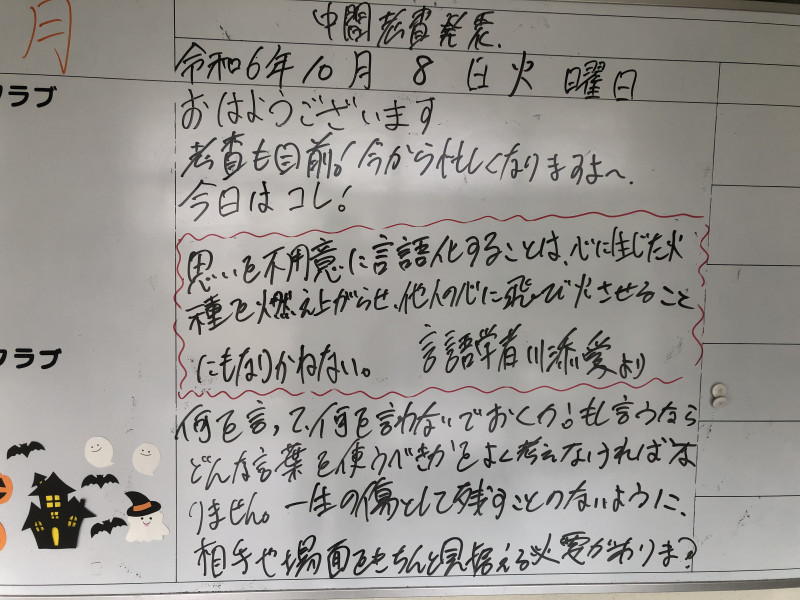 月
中間考査発表.
令和6年10月8日火曜日
クラブ
おはようございます
考査も目前！今から忙しくなりますよ〜.
今日はコレ！
思いを不用意に言語化することは、心に生じた火
種を燃え上がらせ、他人の心に飛び火させること
にもなりかねない。 言語学者川添愛より
クラブ
何を言って、何を言わないでおくか！もし言うなら
どんな言葉を使うべきかをよく考えなければな
りません。一生の傷として残すことのないように、
相手や場面をきちんと見据える必要がありま？